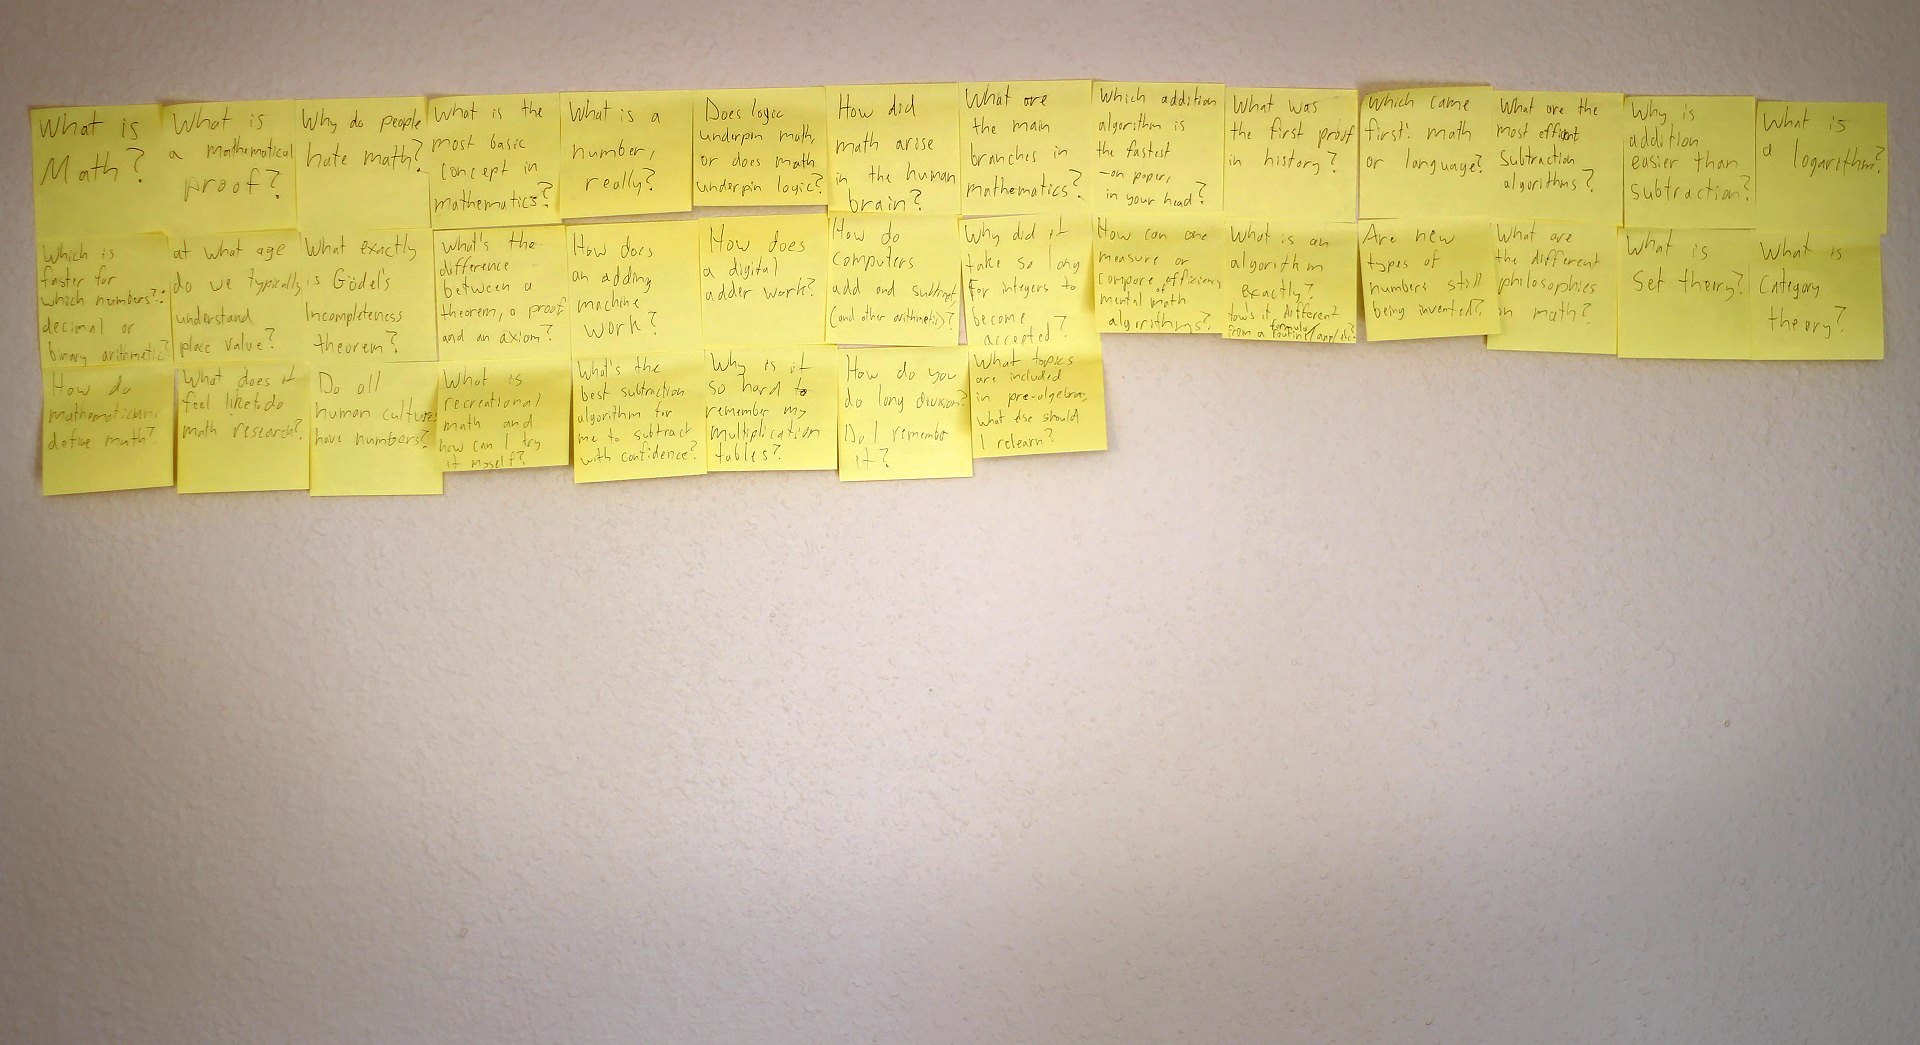 What is
Math?
What is
a mathematical
proof?
Why do people
hate math?
What is the
most basic
concept in
mathematics?
What is a
number,
really?
Does logic
underpin math,
or does math
underpin logic?
How did
math arise
in the human
brain?
What are
the main
branches in
mathematics?
Which addition
algorithm is
the fastest
-on paper,
in your head?
What was
the first proof
in history?
Which came
first: math
or language?
What are the
most efficient
Subtraction
algorithms?
Why is
addition
easier than
subtraction?
What is
a logarithm?
Which is
faster for
which numbers?:
decimal or
binary arithmetic?
at what age
do we typically
understand
place value?
What exactly
is Gödel's
Incompleteness
theorem?
What's the
difference
between a
theorem, a proof
and an axiom?
How does
an adding
machine
work?
How does
a digital
adder work?
How do
computers
add and subtract
(and other arithmetic)?
Why did it
take so long
for integers to
become
accepted?
How can one
measure or
compare efficiency of
mental math
algorithms?
What is an
algorithm
exactly?
How's it different
from a formula/routine/app/etc?
Are new
types of
numbers still
being invented?
What are
the different
philosophies
in math?
What is
Set theory?
What is
Category
theory?
How do
mathematicians
define math?
What does it
feel like to do
math research?
Do all
human cultures
have numbers?
What is
recreational
math and
how can I try
it myself?
What's the
best subtraction
algorithm for
me to subtract
with confidence?
Why is it
so hard to
remember my
multiplication
tables?
How do you
do long division?
Do I remember
it?
What topics
are included
in pre-algebra,
what else should
I relearn?